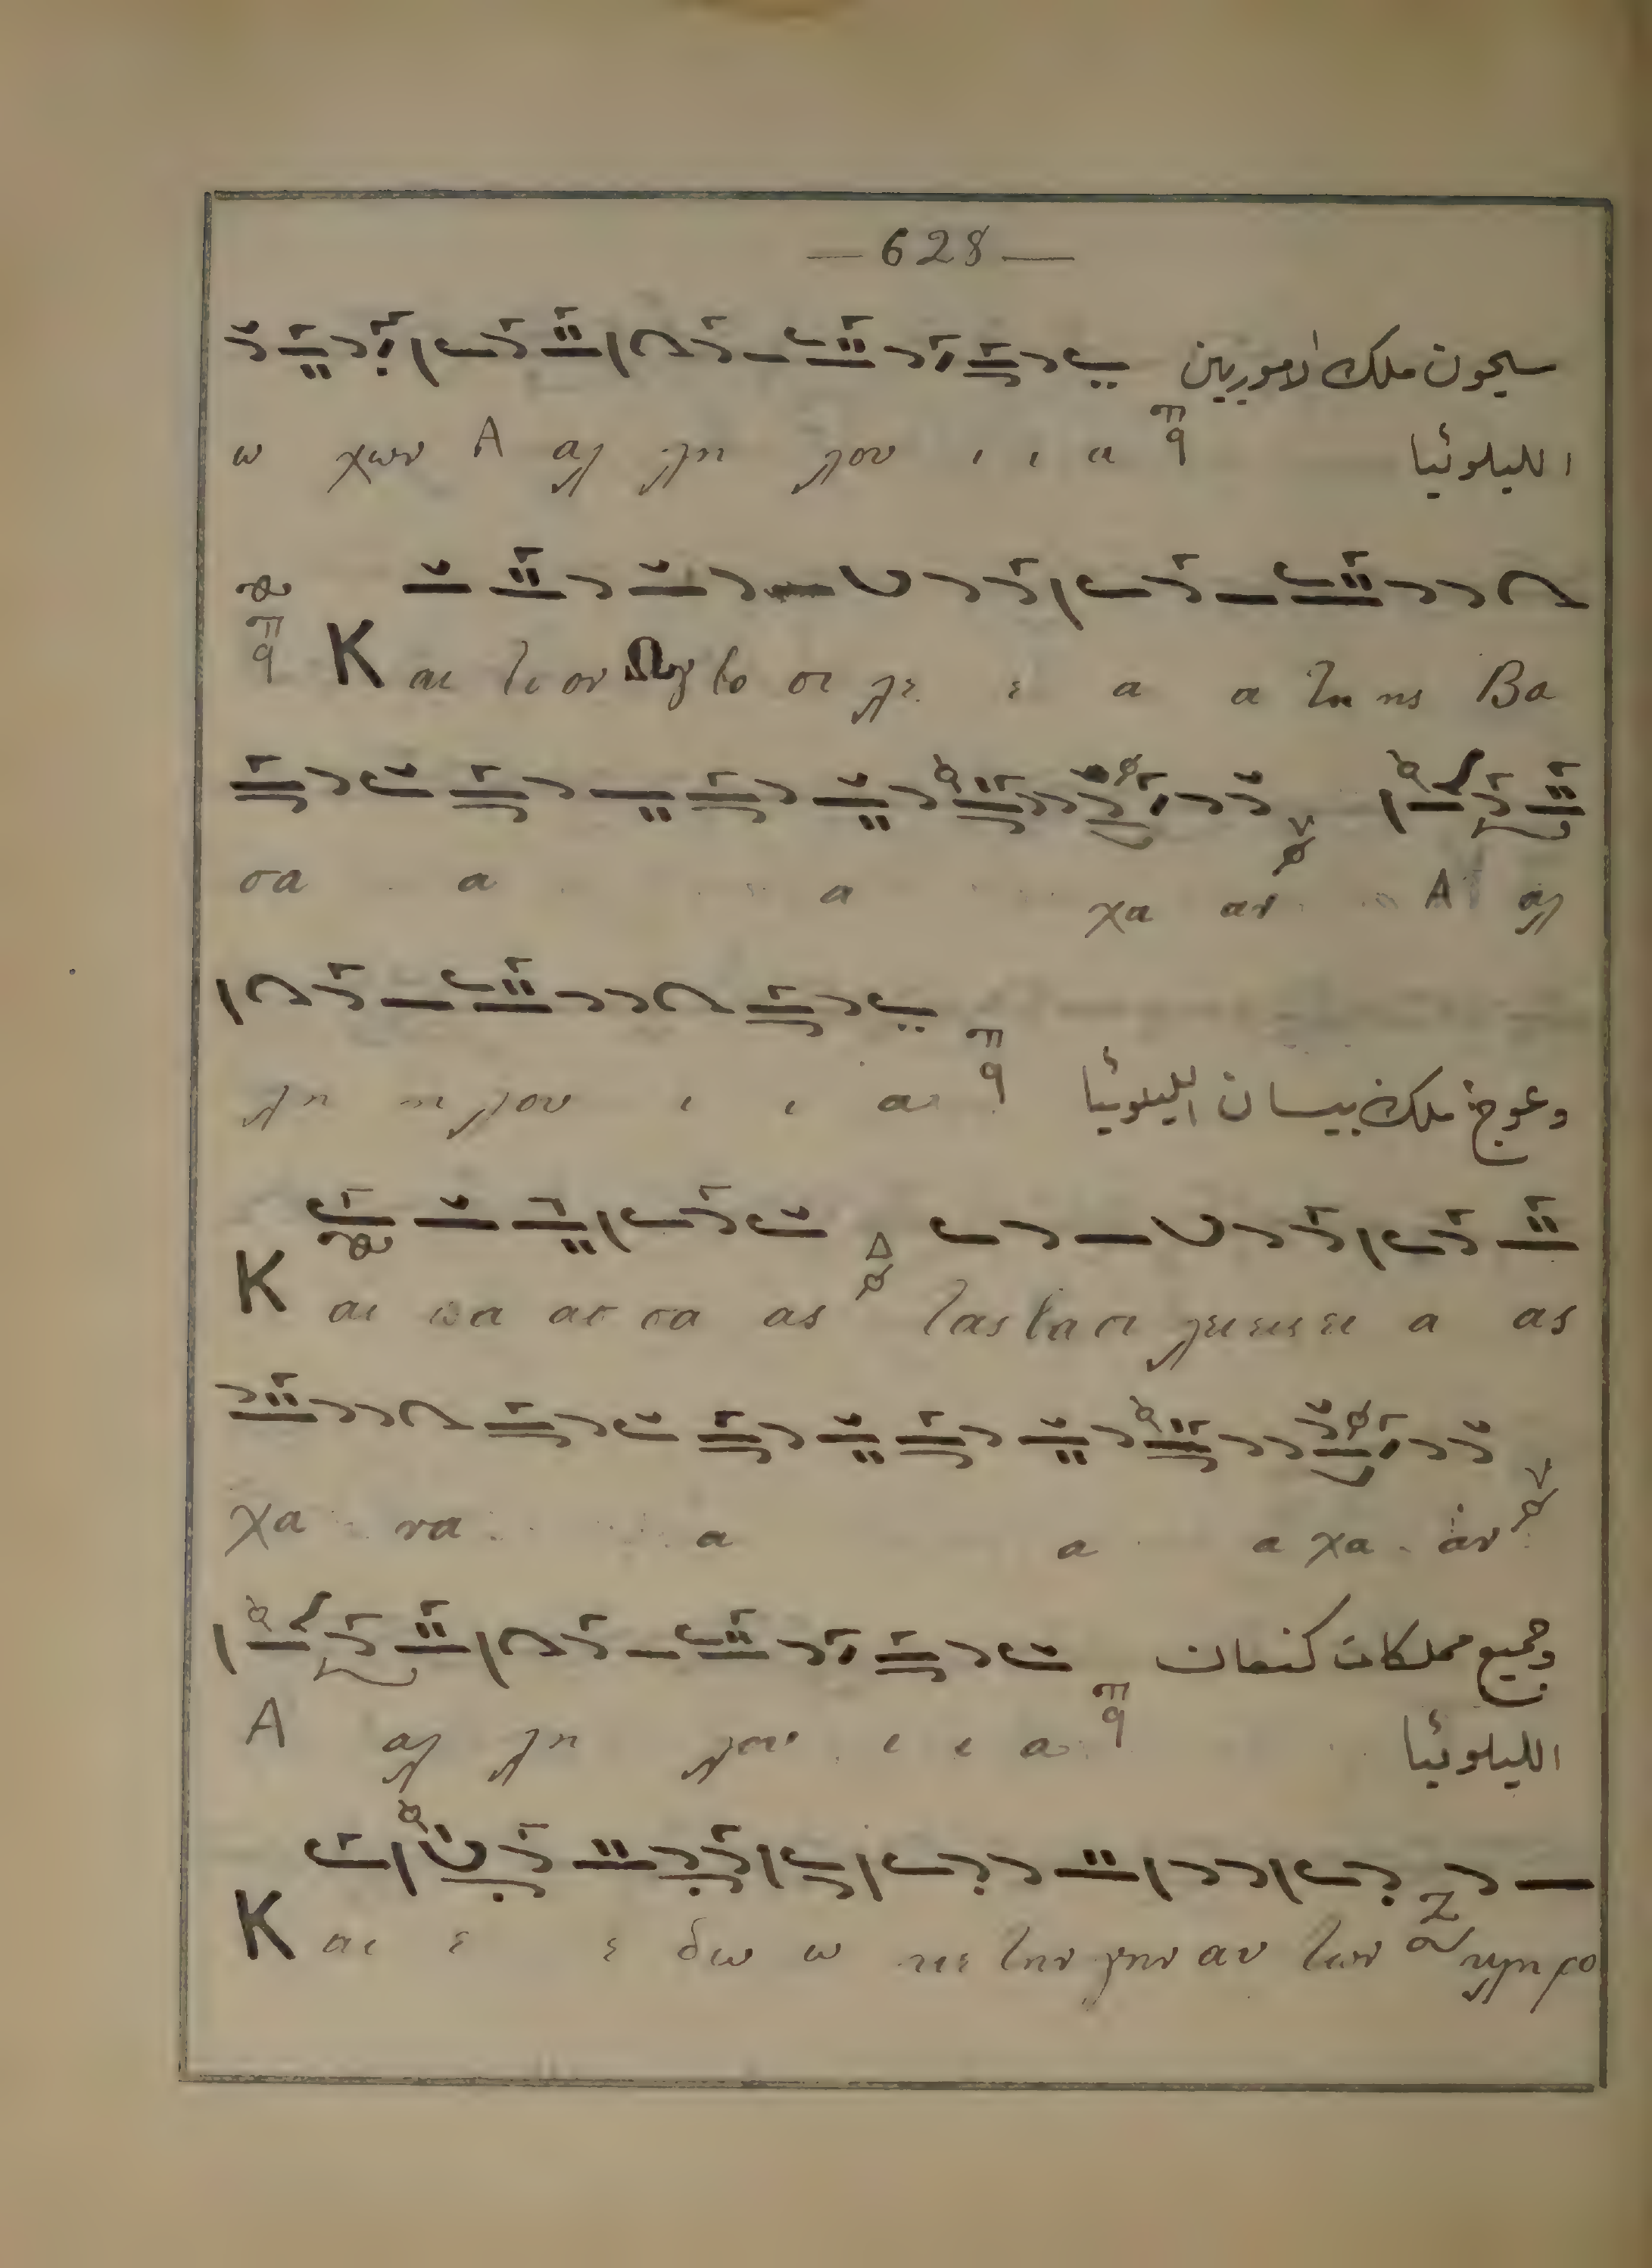 — 628 —
سيحون ملك الاموريين
ω χων Α αλ λη λου ι ι α
الليلوئيا
Και τον Ωγ το σι λε ε α α της Βα
σα α α χα αν Α αλ
λη η λου ι ι α وعوج ملك بيسان الليلوئيا
Και πα ασ σα ας τας βα σι λει ει ει α ας
χα να α α α χα αν
وجميع مملكات كنعان
Α αλ λη λου ι ι α
الليلوئيا
Και ε ε δω ω κε την γην αυ των κληρο